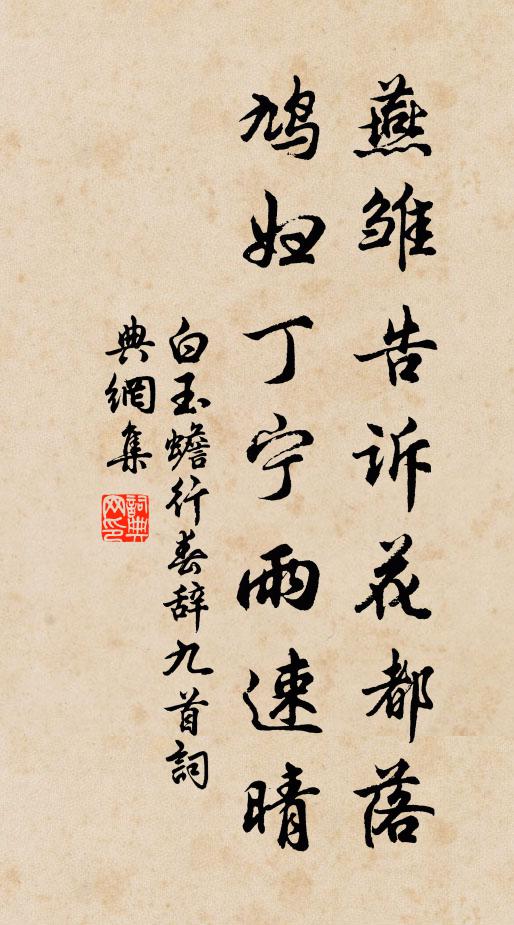 燕雏告诉花都落
鸠妇丁宁雨速晴
白玉蟾行春辞九首詞
典網集
詞典網印